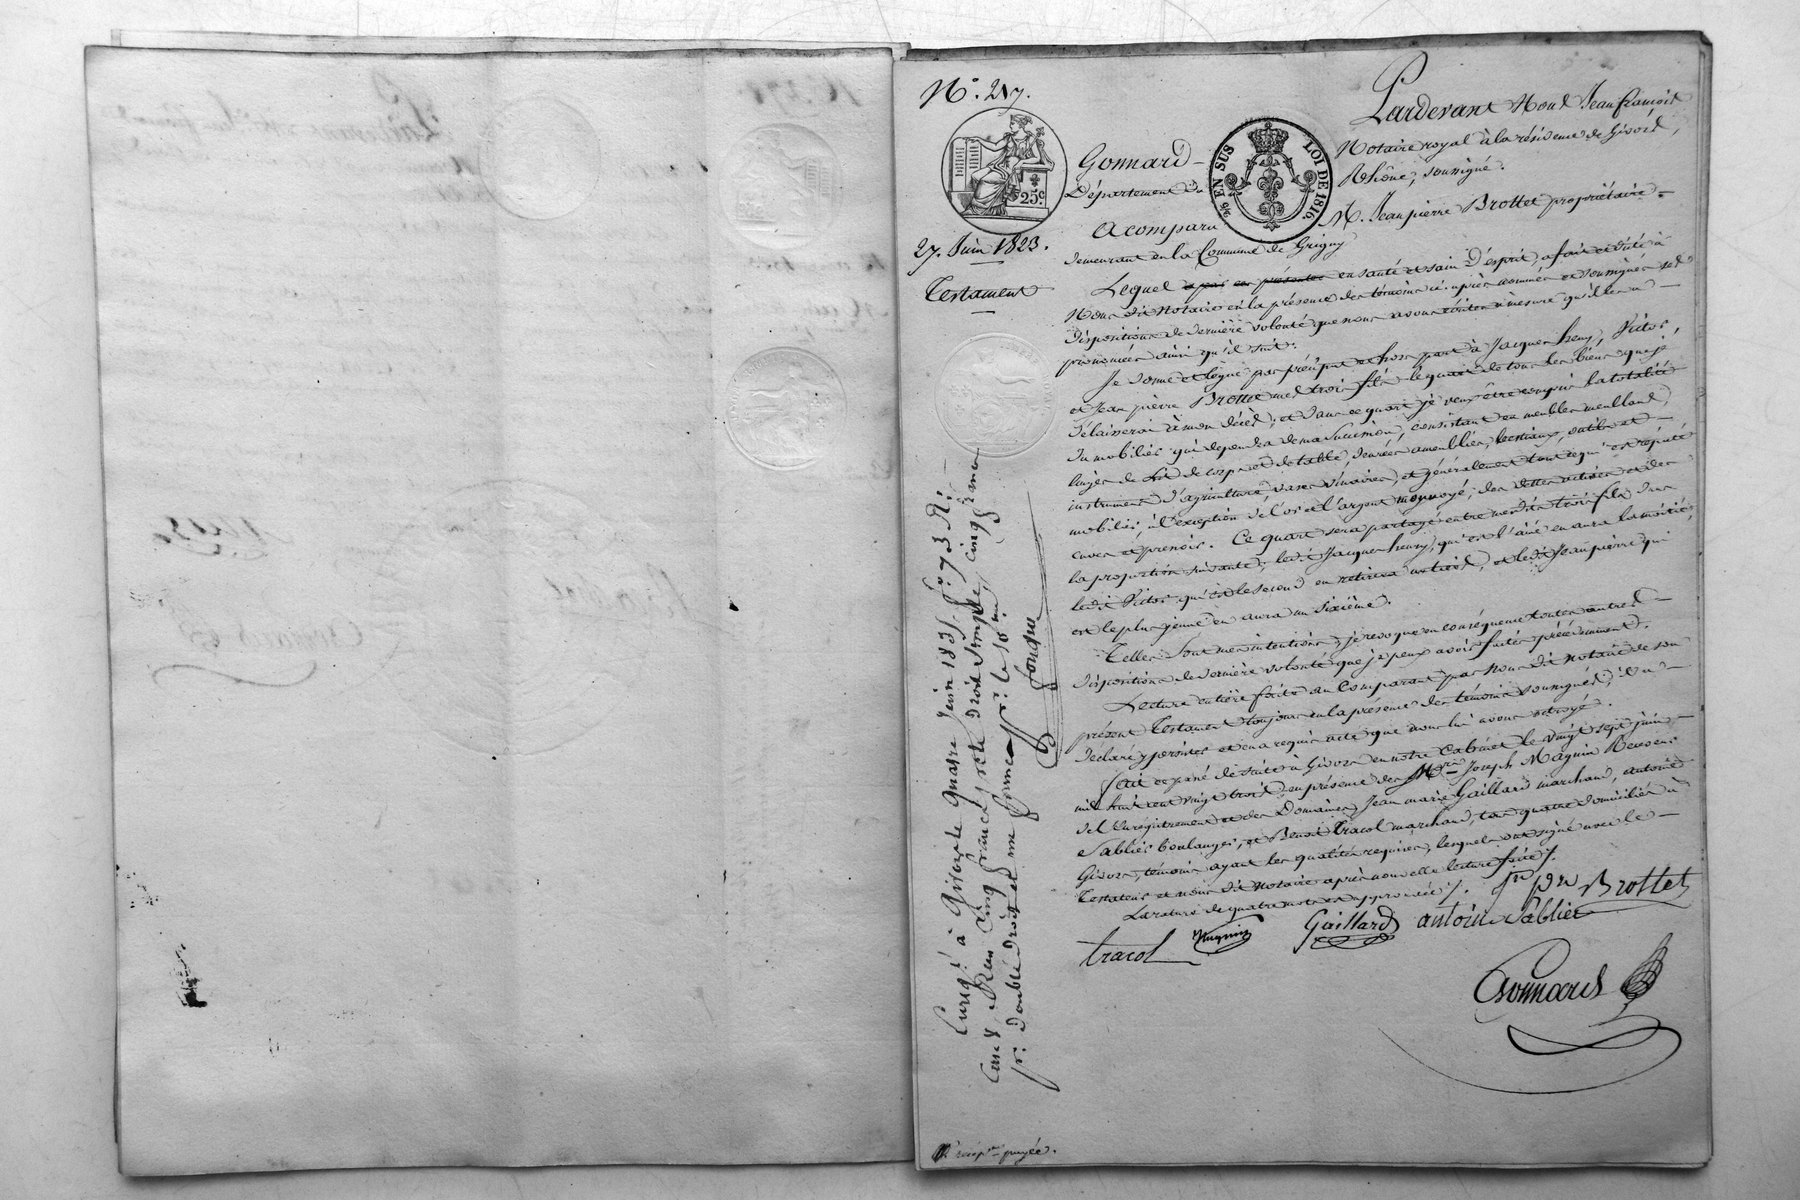 N.º 217.
25c
EN SUS
LOI DE 1816.
27. Juin 1823.
Testament
Pardevant Nous Jean françois
Gonnard - Notaire royal à la résidence de Givors,
Département du Rhône, soussigné.
A comparu M. Jean pierre Brottet propriétaire -
demeurant en la Commune de Grigny
Lequel en santé et sain d'esprit, a fait et dicté à
Nous dit Notaire en la présence des témoins ci-après nommés et soussignés ses
dispositions de dernière volonté que nous avons écrites à mesure qu'il les a -
prononcées ainsi qu'il suit.
Je donne et lègue par préciput et hors part à Jacques henry, Victor,
et Jean pierre Brottet mes trois fils le quart de tous les biens que je
délaisserai à mon décès; et dans ce quart je veux être compris la totalité
du mobilier qui dépendra de ma succession, consistant en meubles meublans,
linges de lit de corps et de table, denrées ameublies, bestiaux, outils et -
instrumens d'agriculture, vases vinaires, et généralement tout ce qui est réputé
mobilier, à l'exception de l'or et l'argent monnoyé, des dettes actives et des
cuves et pressoir. Ce quart sera partagé entre mesdits trois fils dans
la proportion suivante; ledit Jacques henry, qui est l'aîné en aura la moitié,
ledit Victor qui est le second en retirera un tiers, et ledit Jean pierre qui
est le plus jeune en aura un sixième.
Telles sont mes intentions, je révoque en conséquence toutes autres -
dispositions de dernière volonté que je peux avoir faites précédemment.
Lecture entière faite au Comparant par Nous dit Notaire de son
présent Testament toujours en la présence des témoins soussignés, il a -
déclaré y persister et en a requis acte que nous lui avons octroyé.
Fait et passé de suite à Givors en notre Cabinet le vingt sept juin -
mil huit cent vingt trois, en présence de Joseph Magnin Receveur
de l'enregistrement et des Domaines, Jean marie Gaillard marchand, antoine
Sablier boulanger, et Benoit Tracol marchand, tous quatre domiciliés à
Givors, témoins ayant les qualités requises, lesquels ont signé avec le -
Testateur et nous dit Notaire après nouvelle lecture faite /.
La rature de quatre mots est approuvée /.
Jn pre Brottet
tracol Magnin Gaillard antoine Sablier
Gonnard
Enregé à Givors le quatre juin 1835 fº 73 Rº
Case 8 Reçu cinq francs pr le droit simple, cinq francs
pr. double droit et un franc pr. le 10me